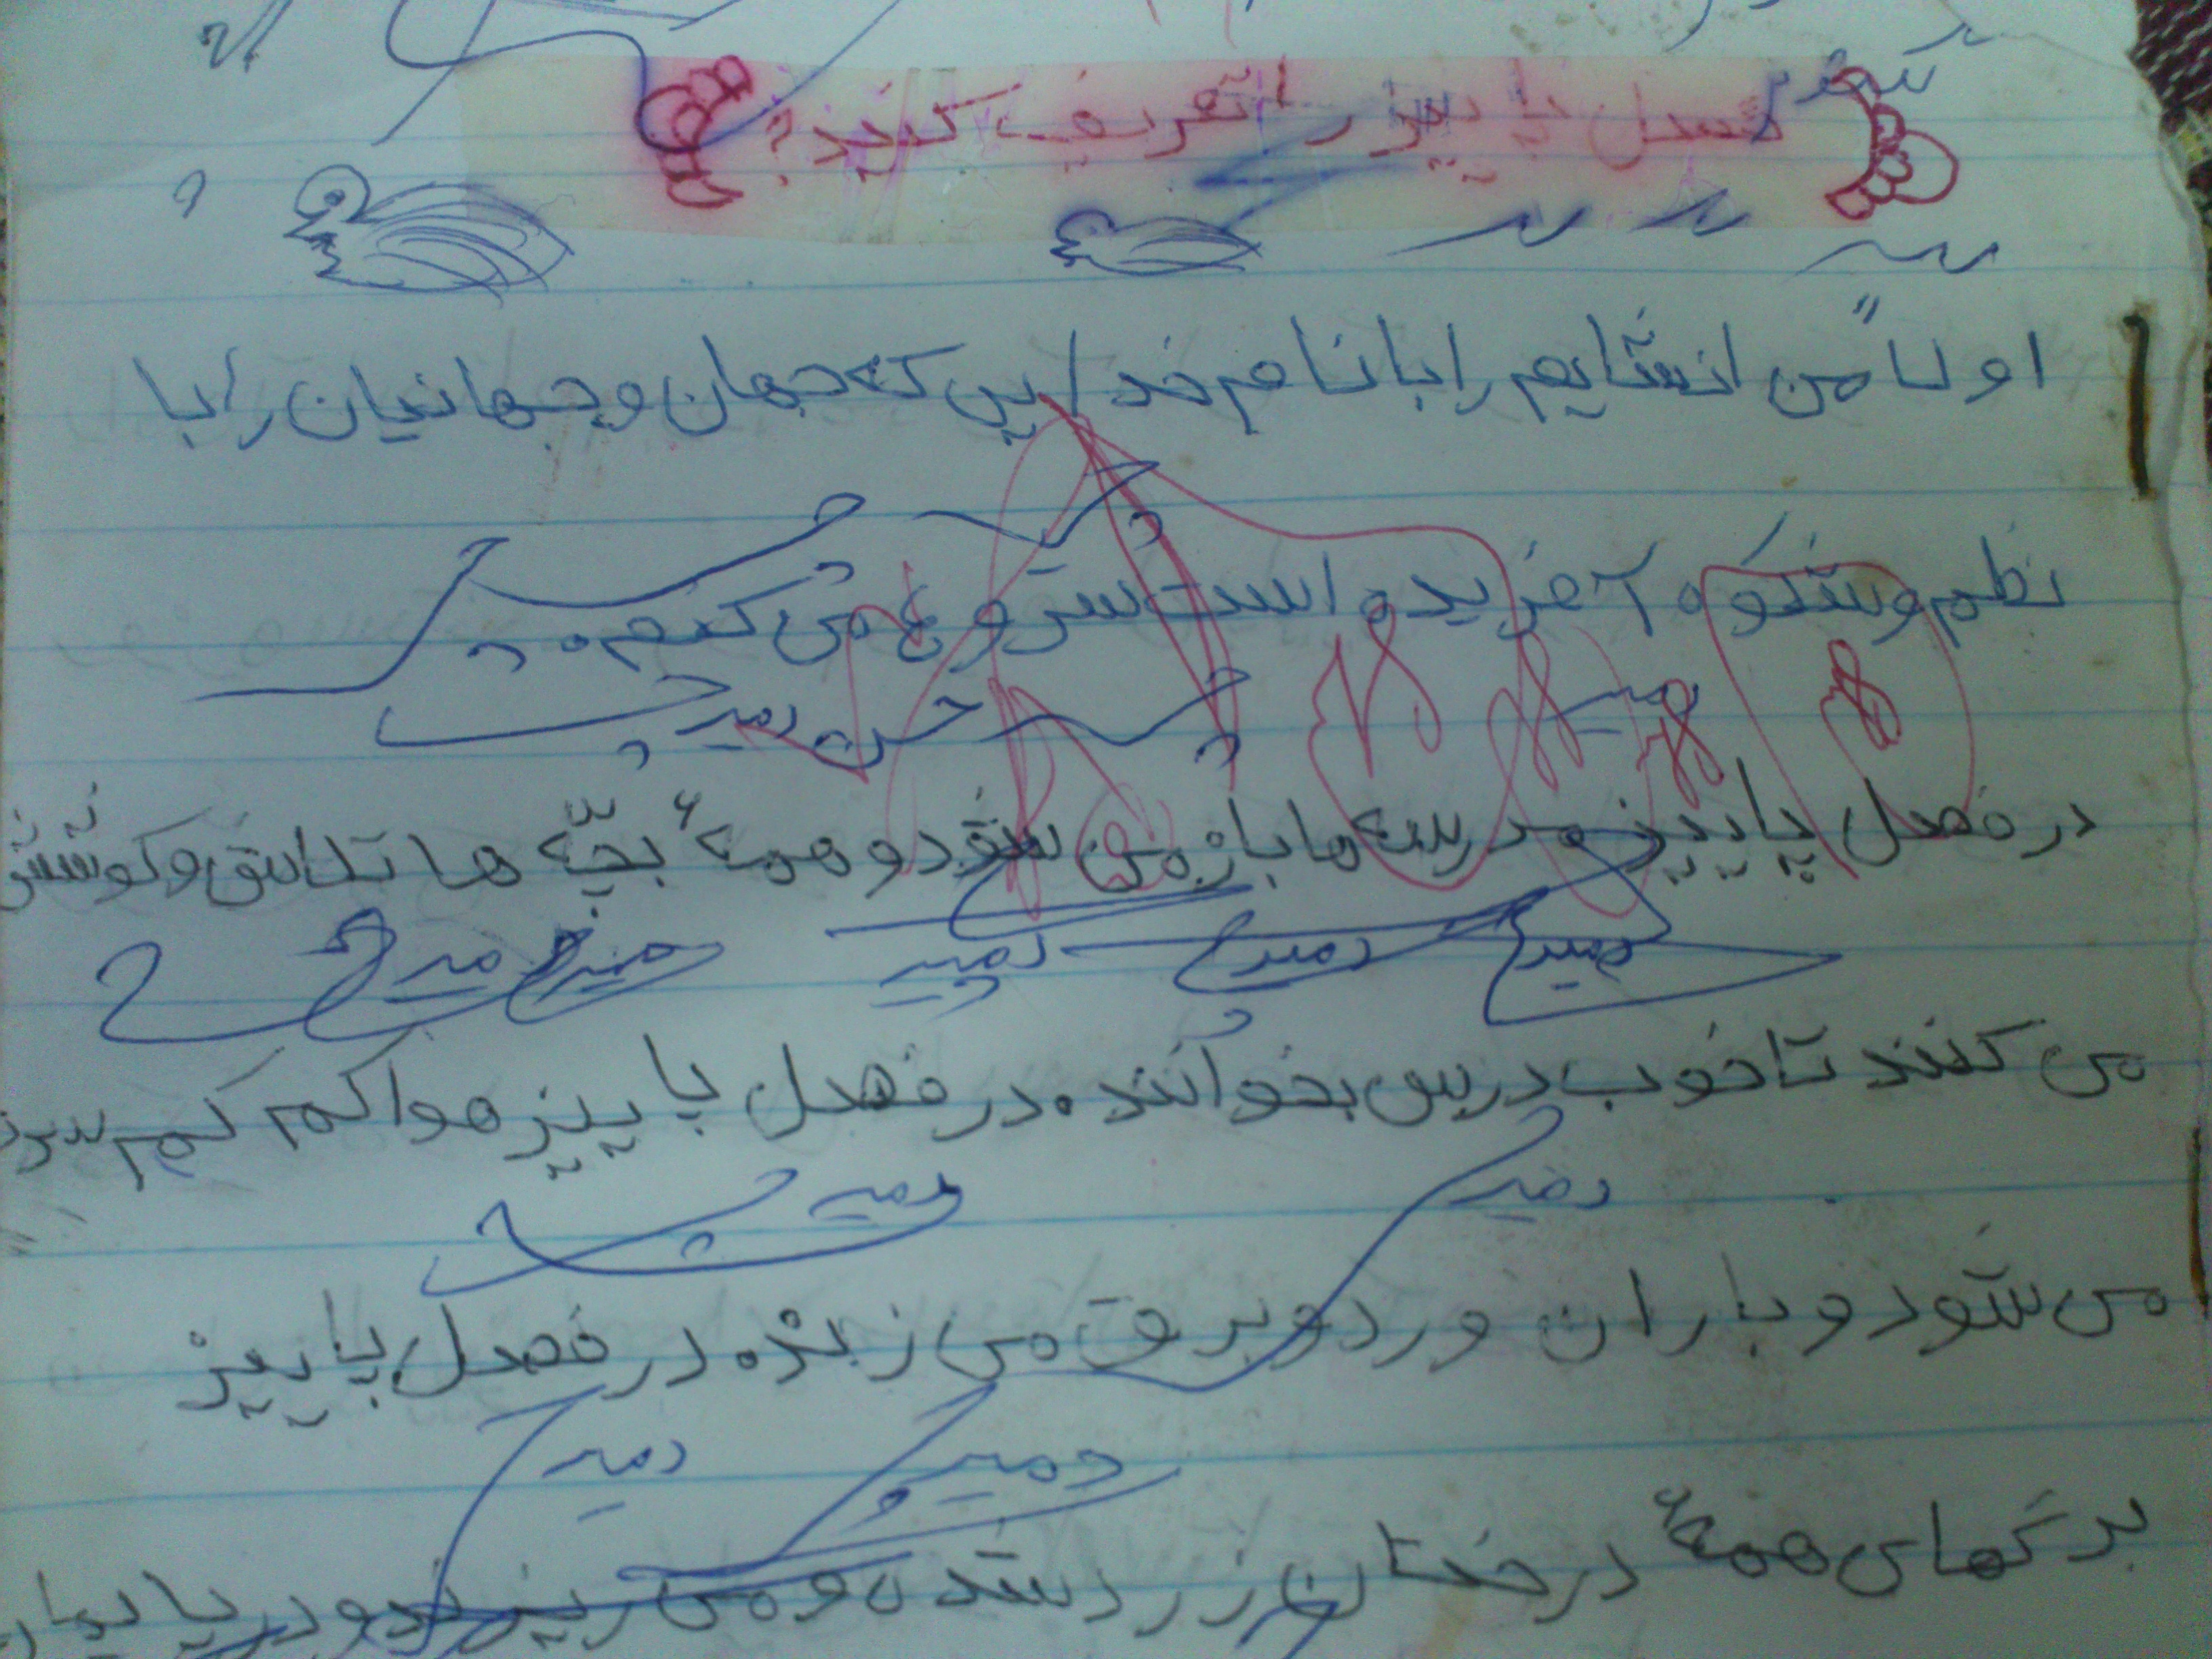 فصل پاییز را تعریف کنید؟
اولاً من انشایم را با نام خدایی که جهان و جهانیان را با
نظم و شکوه آفریده است شروع می کنم.
در فصل پاییز مدرسه ها باز می شود و همهٔ بچّه ها تلاش و کوشش
می کنند تا خوب درس بخوانند. در فصل پاییز هوا کم کم سرد
می شود و باران و رد و برق می زند. در فصل پاییز
برگهای همهٔ درختان زرد شده و می ریزند و در پایان